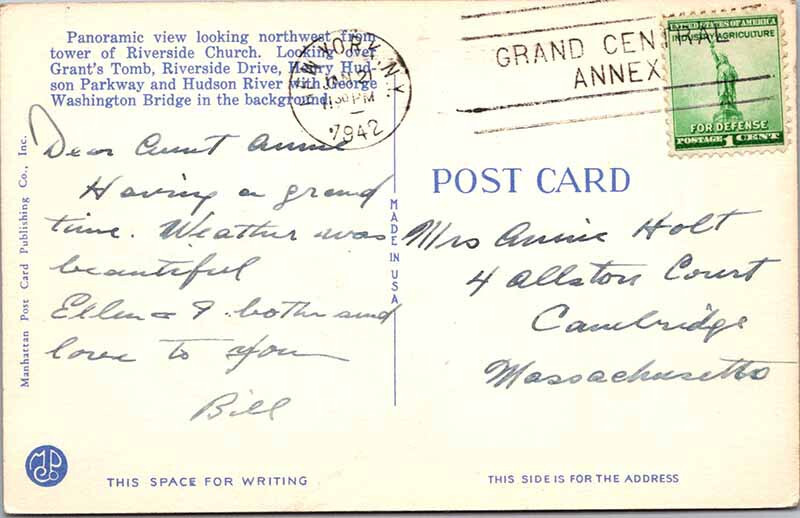 Panoramic view looking northwest from
tower of Riverside Church. Looking over
Grant's Tomb, Riverside Drive, Henry Hud-
son Parkway and Hudson River with George
Washington Bridge in the background.
NEW YORK, N.Y.
JAN 21
1942
GRAND CENTRAL
ANNEX
UNITED STATES OF AMERICA
INDUSTRY AGRICULTURE
FOR DEFENSE
POSTAGE 1 CENT
Manhattan Post Card Publishing Co., Inc.
Dear Aunt Annie
Having a grand
time. Weather was
beautiful
Ellen & I both send
love to you
Bill
MADE IN USA
POST CARD
Mrs Annie Holt
4 Allston Court
Cambridge
Massachusetts
MPCo
THIS SPACE FOR WRITING
THIS SIDE IS FOR THE ADDRESS